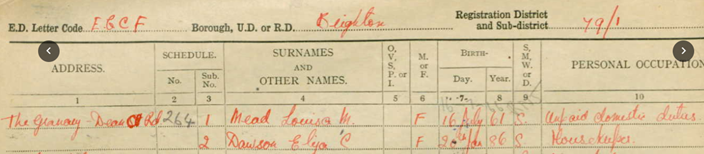 E.D. Letter Code E.B.C.F Borough, U.D. or R.D. Brighton Registration District and Sub-district 79/1
ADDRESS. SCHEDULE. No. Sub. No. SURNAMES AND OTHER NAMES. O, V, S, P. or I. M. or F. BIRTH- Day. Year. S, M, W, or D. PERSONAL OCCUPATION
1 2 3 4 5 6 7 8 9 10
The Granary Dean Ct Rd 264 1 Mead Louisa M. F 16 July 61 S Unpaid domestic duties.
2 Dawson Eliza C F 86 S Housekeeper.